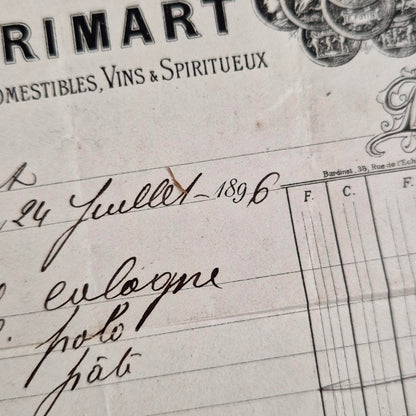 RIMART
OMESTIBLES, VINS & SPIRITUEUX
Bardinet 35, Rue de l'Echi
24 Juillet 1896
F. C. F.
cologne
polo
pâté